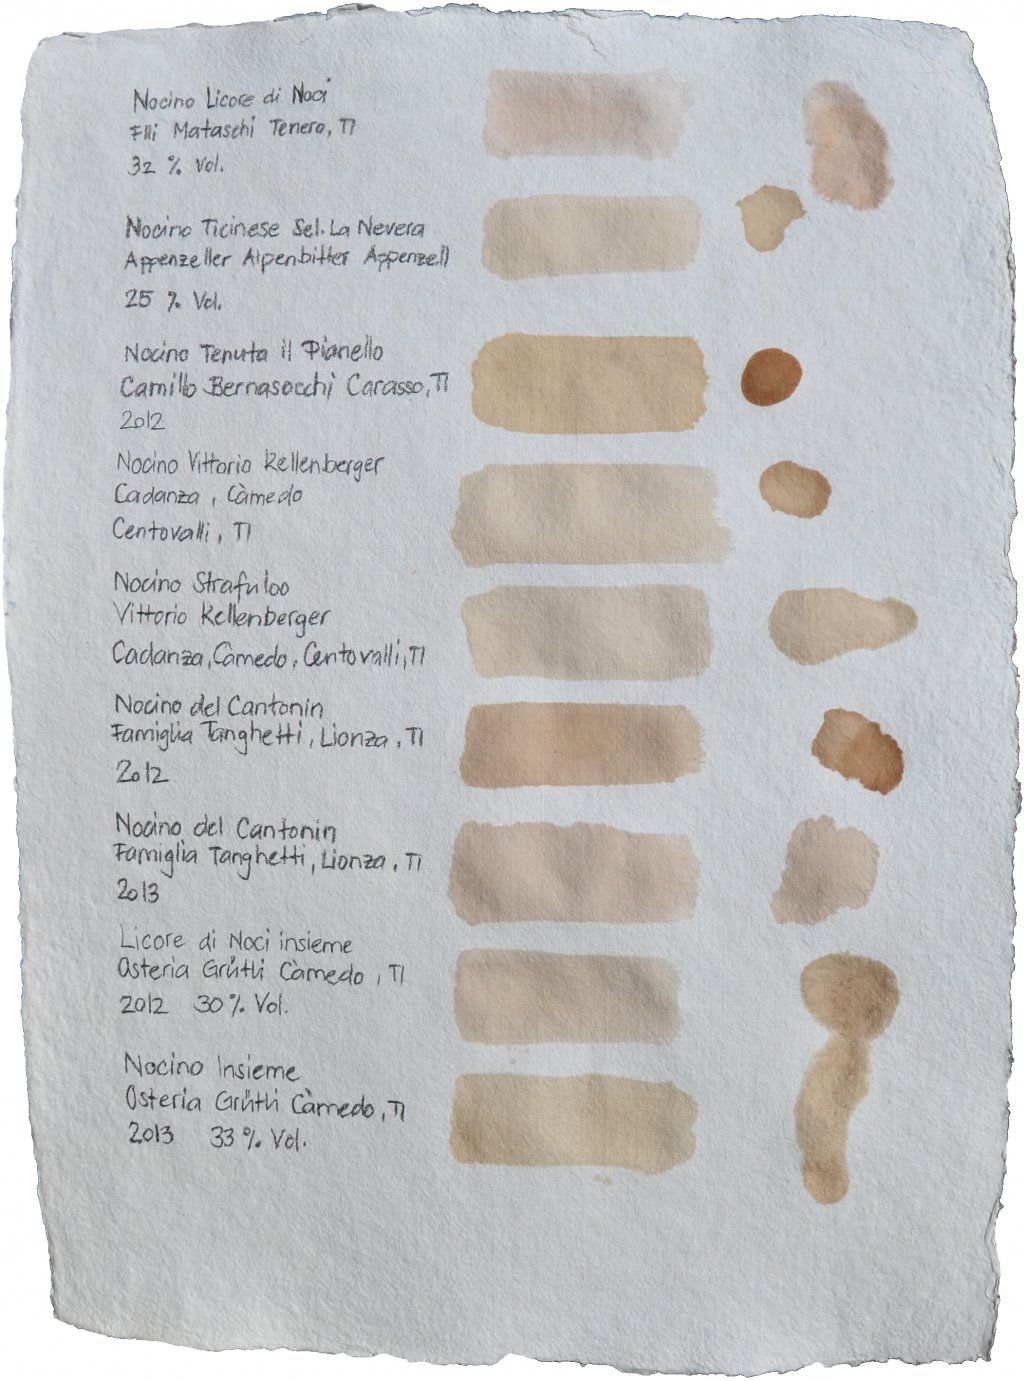 Nocino Licore di Noci
Flli Mataschi Tenero, TI
32 % Vol.
Nocino Ticinese Sel. La Nevera
Appenzeller Alpenbitter Appenzell
25 % Vol.
Nocino Tenuta il Pianello
Camillo Bernasocchi Carasso, TI
2012
Nocino Vittorio Kellenberger
Cadanza, Càmedo
Centovalli, TI
Nocino Strafuloo
Vittorio Kellenberger
Cadanza, Càmedo, Centovalli, TI
Nocino del Cantonin
Famiglia Tanghetti, Lionza, TI
2012
Nocino del Cantonin
Famiglia Tanghetti, Lionza, TI
2013
Licore di Noci insieme
Osteria Grütli Càmedo, TI
2012 30 % Vol.
Nocino Insieme
Osteria Grütli Càmedo, TI
2013 33 % Vol.